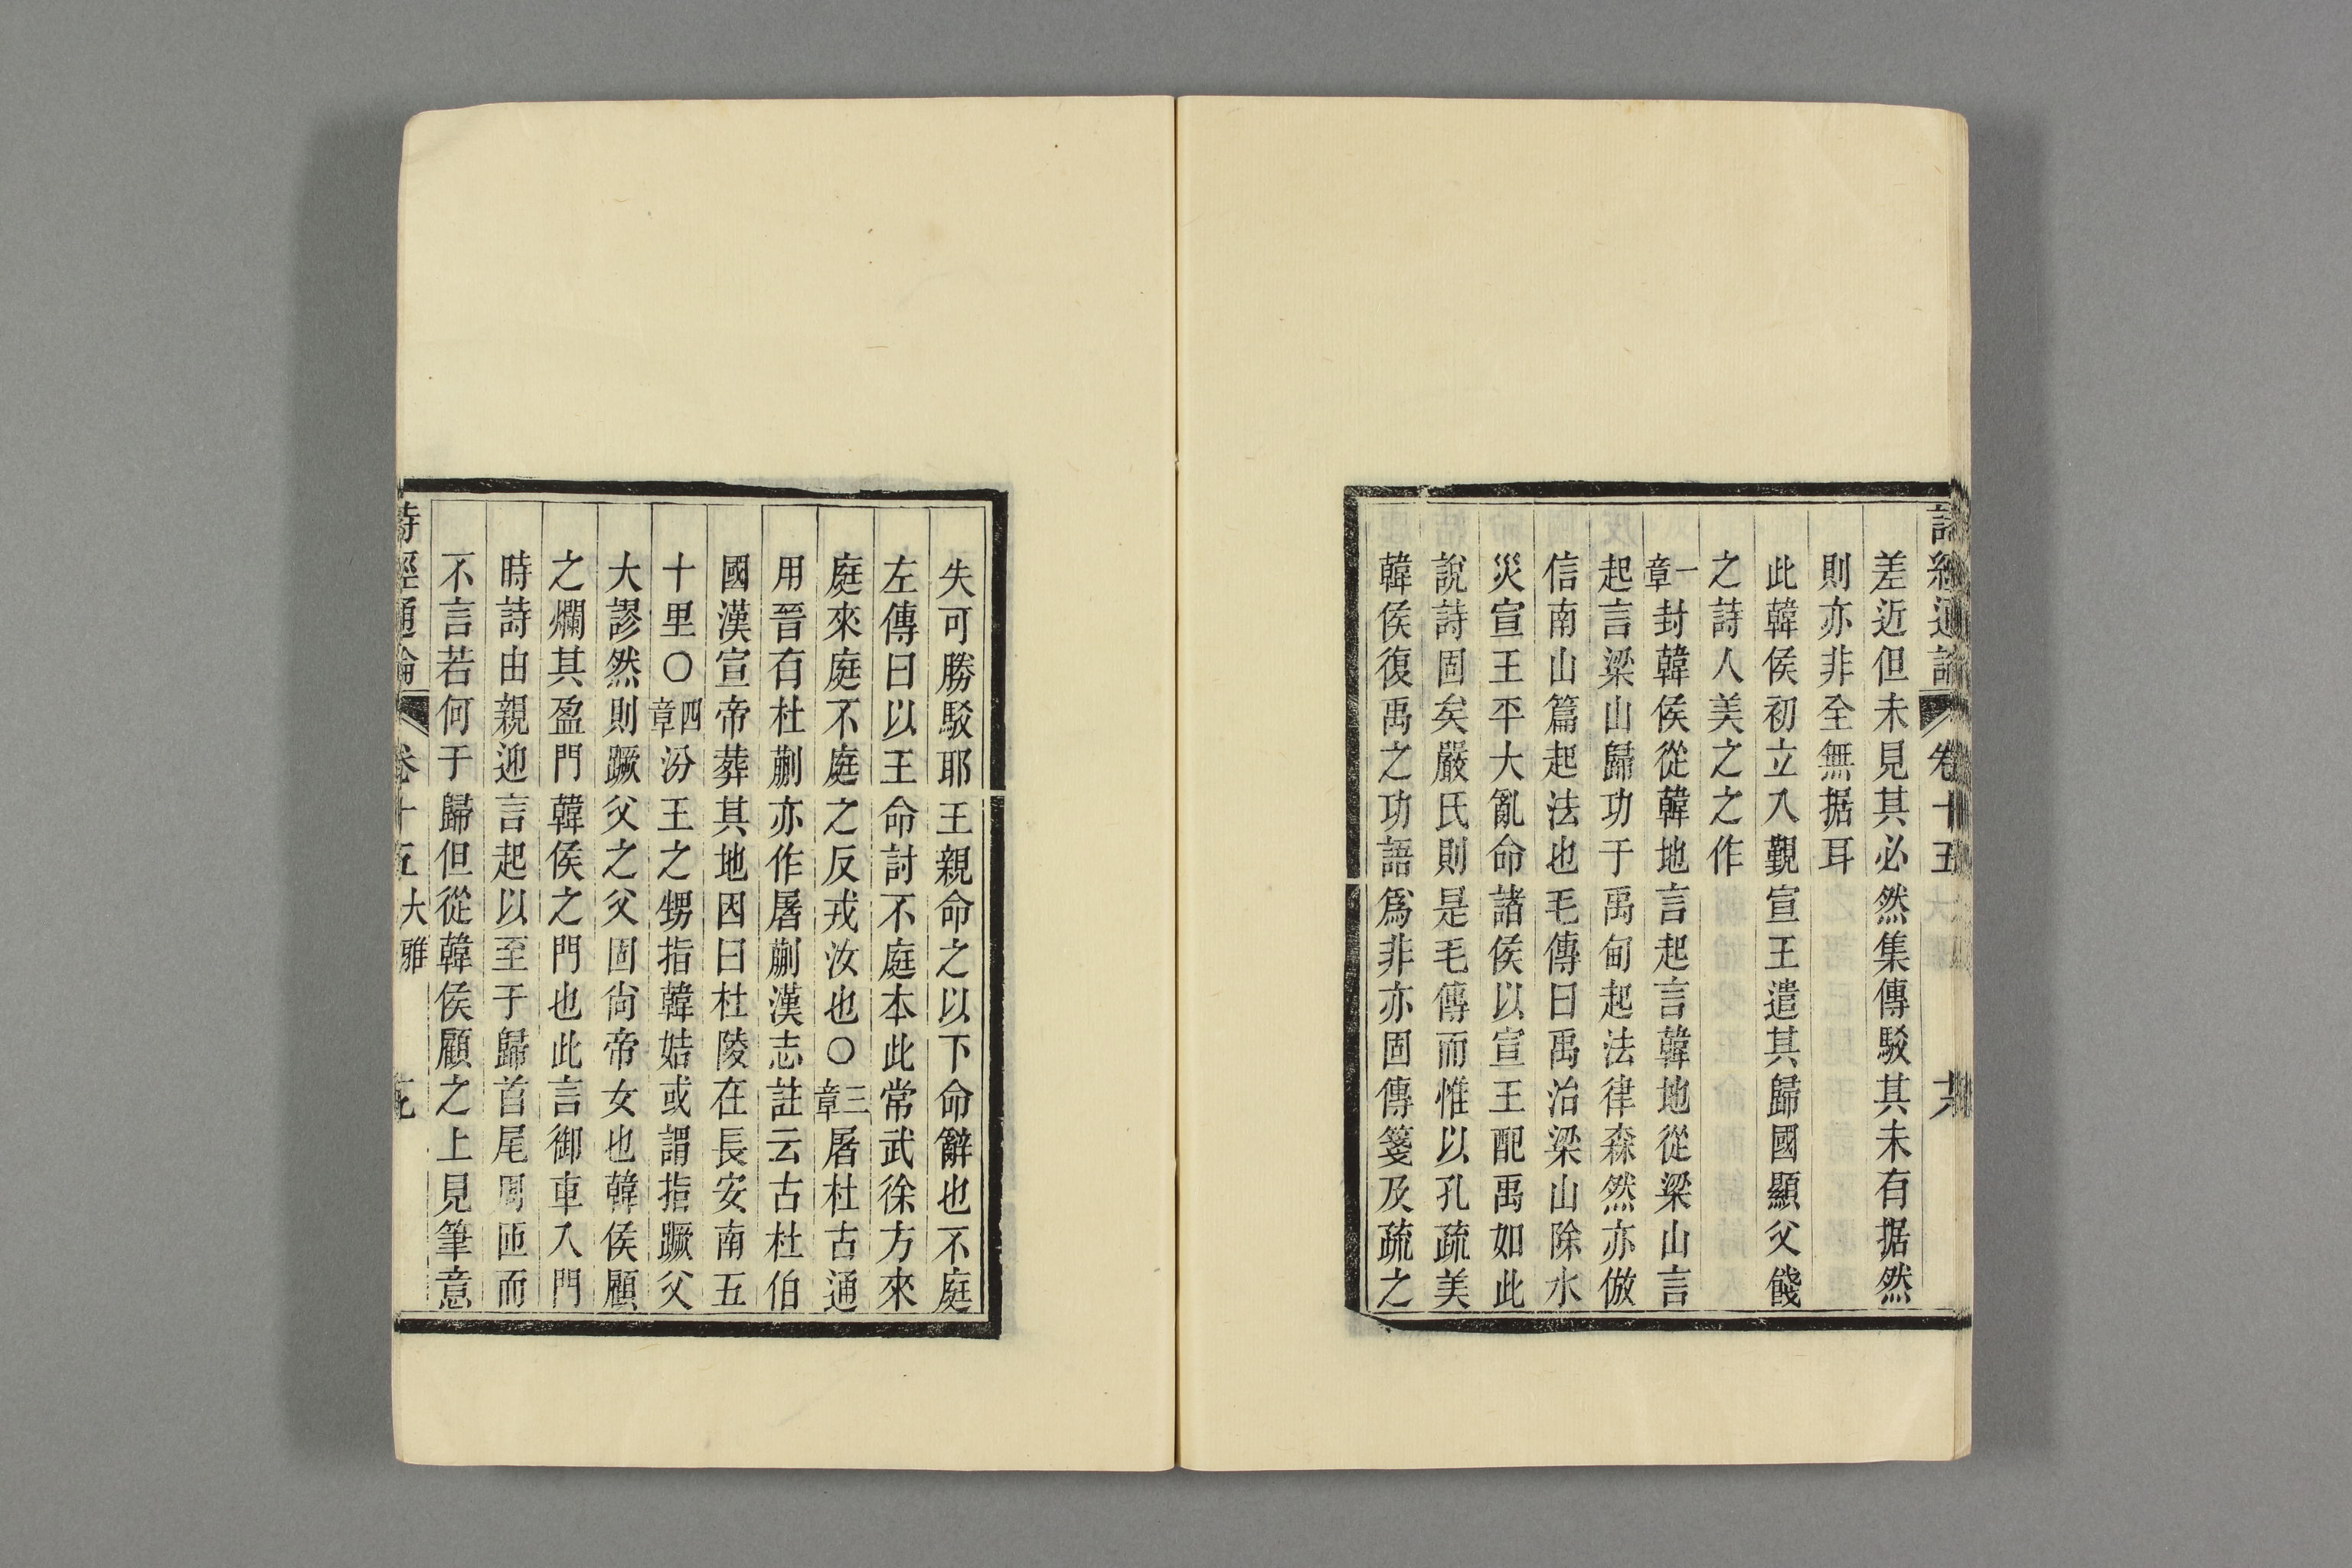 差近但未見其必然集傳駁其未有据然
則亦非全無据耳
此韓侯初立入覲宣王遣其歸國顯父餞
之詩人美之之作
一章封韓侯從韓地言起言韓地從梁山言
起言梁山歸功于禹甸起法律森然亦倣
信南山篇起法也毛傳曰禹治梁山除水
災宣王平大亂命諸侯以宣王配禹如此
說詩固矣嚴氏則是毛傳而惟以孔疏美
韓侯復禹之功語爲非亦固傳箋及疏之
失可勝駁耶王親命之以下命辭也不庭
左傳曰以王命討不庭本此常武徐方來
庭來庭不庭之反戎汝也〇三章屠杜古通
用晉有杜蒯亦作屠蒯漢志註云古杜伯
國漢宣帝葬其地因曰杜陵在長安南五
十里〇四章汾王之甥指韓姞或謂指蹶父
大謬然則蹶父之父固尙帝女也韓侯顧
之爛其盈門韓侯之門也此言御車入門
時詩由親迎言起以至于歸首尾周匝而
不言若何于歸但從韓侯顧之上見筆意
詩經通論 卷十五 大雅